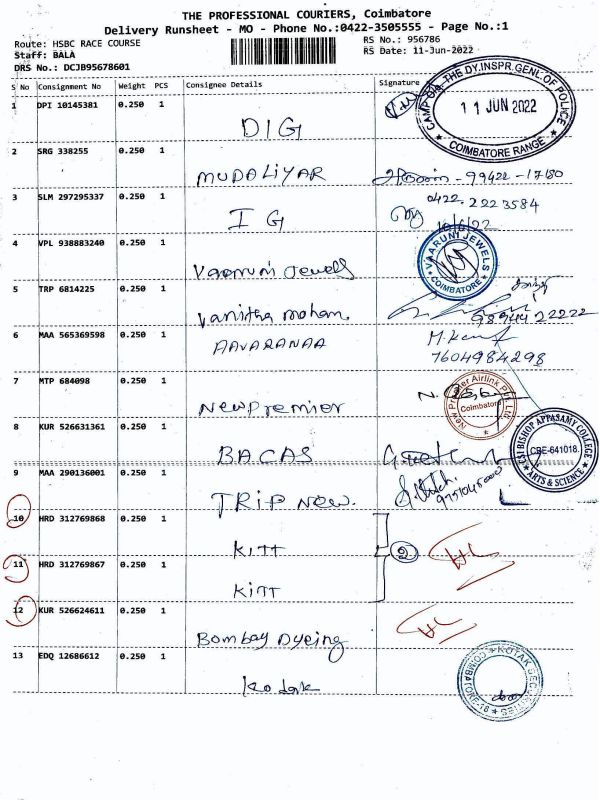 THE PROFESSIONAL COURIERS, Coimbatore
Delivery Runsheet - MO - Phone No.:0422-3505555 - Page No.:1
Route: HSBC RACE COURSE
RS No.: 956786
Staff: BALA
RS Date: 11-Jun-2022
DRS No.: DCJB95678601
S No Consignment No Weight PCS Consignee Details Signature
CAMP OFF. THE DY.INSPR.GENL OF POLICE
11 JUN 2022
COIMBATORE RANGE
1 DPI 10145381 0.250 1
DIG
2 SRG 338255 0.250 1
MUDALIYAR 99422-17180
3 SLM 297295337 0.250 1
IG 0422 2223584
10/6/22
4 VPL 938883240 0.250 1
Vaaruni Jewells
VAARUNI JEWELS
COIMBATORE
5 TRP 6814225 0.250 1
Vanitha mohan
6 MAA 565369598 0.250 1
AAVARANAA
7604984298
7 MTP 684098 0.250 1
New Premier
New Premier Airlink Pvt. Ltd
Coimbatore
8 KUR 526631361 0.250 1
BACAS
CSI BISHOP APPASAMY COLLEGE
CBE-641018.
ARTS & SCIENCE
9 MAA 290136001 0.250 1
TRIP NEW.
10 HRD 312769868 0.250 1
KITT
2
11 HRD 312769867 0.250 1
KITT
12 KUR 526624611 0.250 1
Bombay Dyeing
13 EDQ 12686612 0.250 1
Kodak
KOTAK SECURITIES
COIMBATORE-18